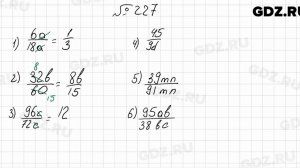 GDZ.RU
№ 227
1) 6a/18a = 1/3
4) 45/9d
8
2) 32b/60 = 8b/15
15
5) 39mn/91mn
3) 96c/12c = 12
6) 95ab/38bc
GDZ.RU